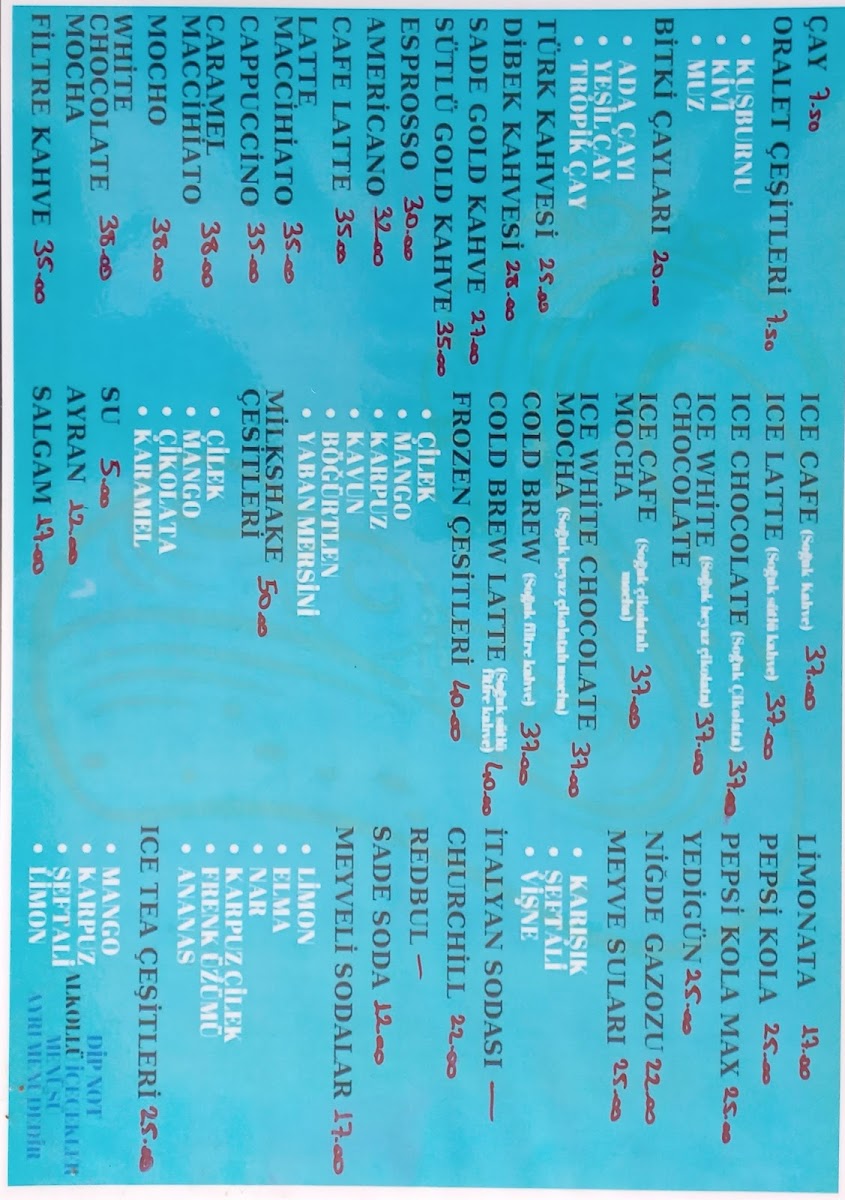 ÇAY 7.50
ORALET ÇEŞİTLERİ 7.50
• KUŞBURNU
• KİVİ
• MUZ
BİTKİ ÇAYLARI 20.00
• ADA ÇAYI
• YEŞİL ÇAY
• TROPİK ÇAY
TÜRK KAHVESİ 25.00
DİBEK KAHVESİ 28.00
SADE GOLD KAHVE 27.00
SÜTLÜ GOLD KAHVE 35.00
ESPROSSO 30.00
AMERİCANO 32.00
CAFE LATTE 35.00
LATTE
MACCİHİATO 35.00
CAPPUCCİNO 35.00
CARAMEL
MACCİHİATO 38.00
MOCHO 38.00
WHİTE
CHOCOLATE 38.00
MOCHA
FİLTRE KAHVE 35.00
ICE CAFE (Soğuk Kahve) 37.00
ICE LATTE (Soğuk sütlü kahve) 37.00
ICE CHOCOLATE (Soğuk Çikolata) 37.00
ICE WHİTE (Soğuk beyaz çikolata) 37.00
CHOCOLATE
ICE CAFE (Soğuk çikolatalı
MOCHA mocha) 37.00
ICE WHİTE CHOCOLATE
MOCHA (Soğuk beyaz çikolatalı mocha) 37.00
COLD BREW (Soğuk filtre kahve) 37.00
COLD BREW LATTE (Soğuk sütlü
filtre kahve) 40.00
FROZEN ÇEŞİTLERİ 40.00
• ÇİLEK
• MANGO
• KARPUZ
• KAVUN
• BÖĞÜRTLEN
• YABAN MERSİNİ
MİLKSHAKE
ÇEŞİTLERİ 50.00
• ÇİLEK
• MANGO
• ÇİKOLATA
• KARAMEL
SU 5.00
AYRAN 12.00
SALGAM 17.00
LİMONATA 17.00
PEPSİ KOLA 25.00
PEPSİ KOLA MAX 25.00
YEDİGÜN 25.00
NİĞDE GAZOZU 22.00
MEYVE SULARI 25.00
• KARIŞIK
• ŞEFTALİ
• VİŞNE
İTALYAN SODASI —
CHURCHİLL 22.00
REDBUL —
SADE SODA 12.00
MEYVELİ SODALAR 17.00
• LİMON
• ELMA
• NAR
• KARPUZ ÇİLEK
• FRENK ÜZÜMÜ
• ANANAS
ICE TEA ÇEŞİTLERİ 25.00
• MANGO
• KARPUZ
• ŞEFTALİ
• LİMON
DİP NOT
ALKOLLÜ İÇECEKLER
MENÜSÜ
AYRI MENÜDEDİR